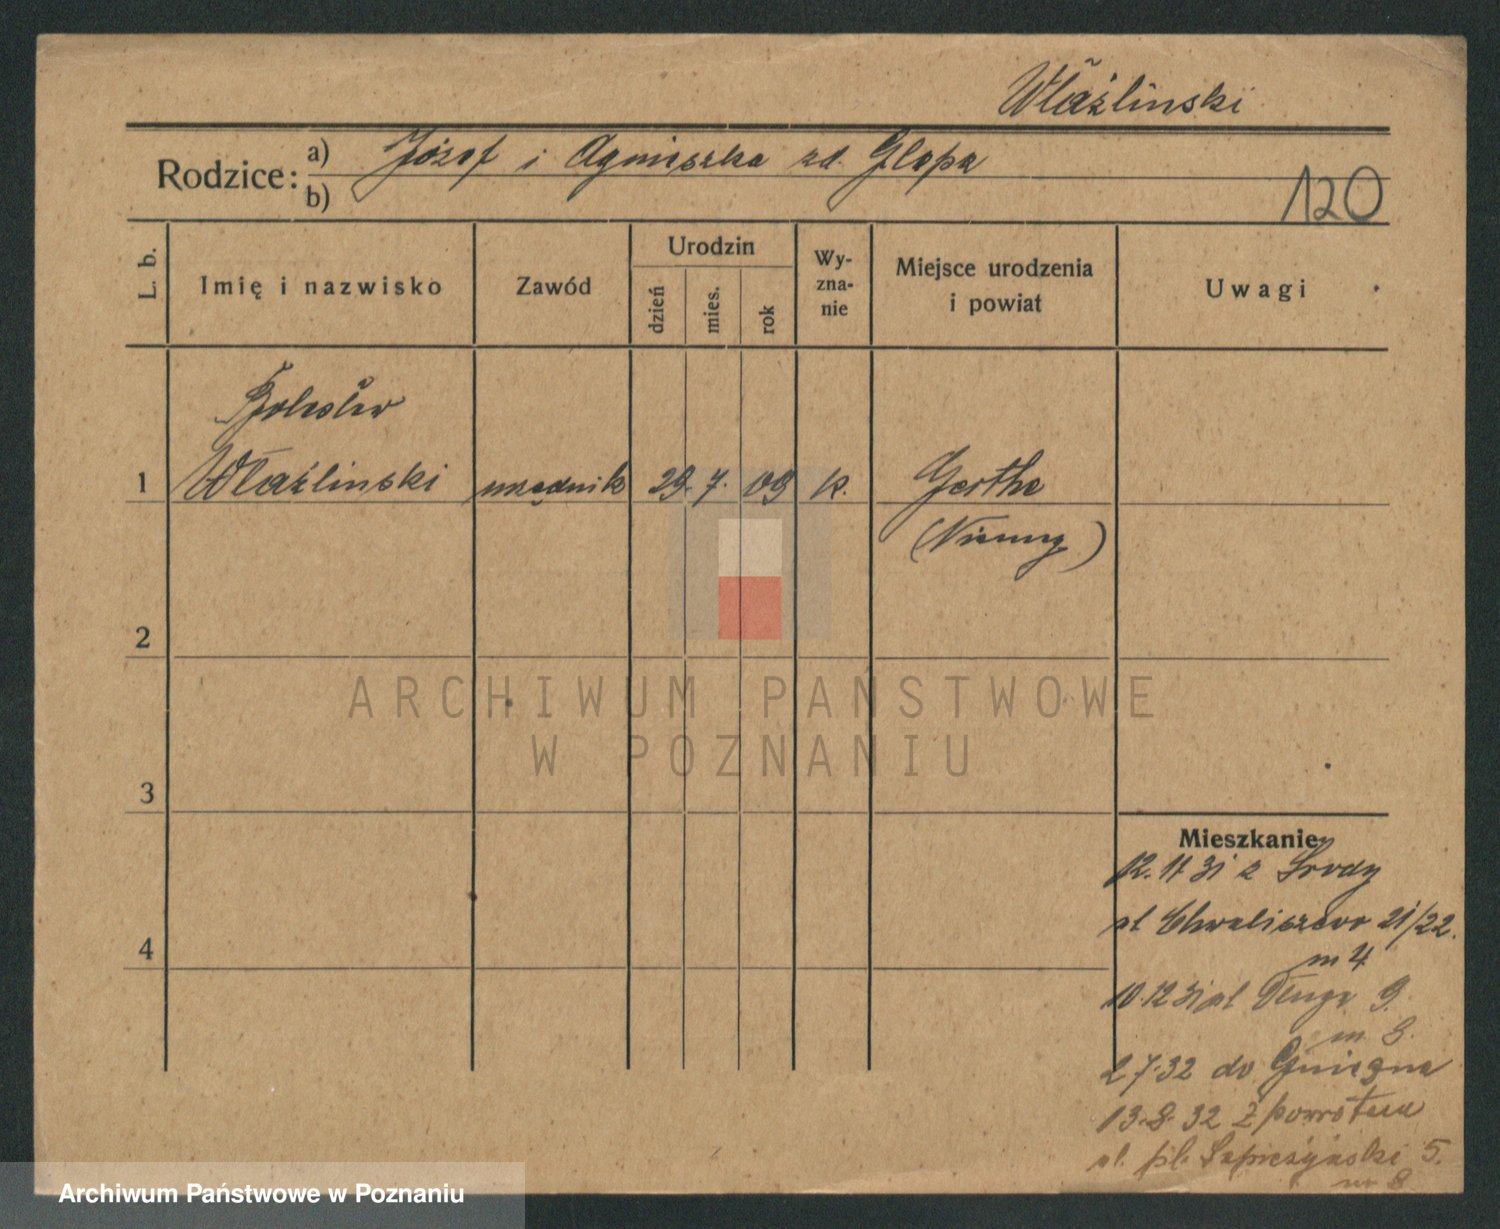 Właźlinski
Rodzice: a) Józef i Agnieszka zd. Glapa
b)
120
L. b.
Imię i nazwisko
Zawód
Urodzin
dzień
mies.
rok
Wy-
zna-
nie
Miejsce urodzenia
i powiat
Uwagi
Bolesław
1 Właźlinski urzędnik 29. 7. 09 k. Gerthe
(Niemcy)
2
ARCHIWUM PAŃSTWOWE
W POZNANIU
3
Mieszkanie
12.11 31 z Środy
ul Chwaliszewo 21/22.
m 4
4
10.12 31 ul Długa 9.
m 8.
2 7.32 do Gniezna
13.8.32 z powrotem
pl. Sapieżyński 5.
m 8
Archiwum Państwowe w Poznaniu